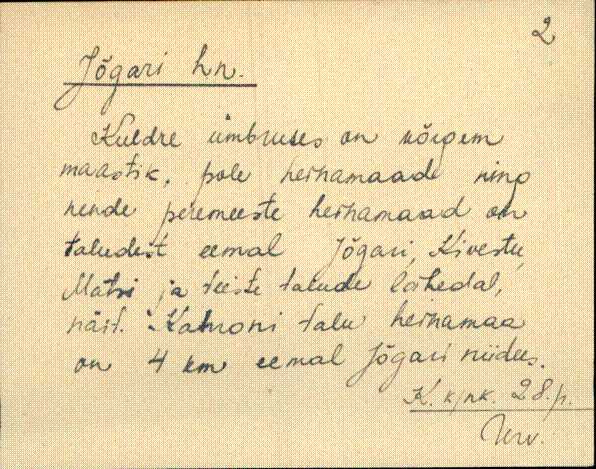 2
Jõgari hn.
Kuldre ümbruses on kõrgem
maastik, pole heinamaad ning
nende peremeeste heinamaad on
taludest eemal Jõgari, Kivestu,
Matsi ja teiste talude lähedal,
näit. Katuoni talu heinamaa
on 4 km eemal Jõgari niidus.
K. kjnk. 28.p.
Urv.